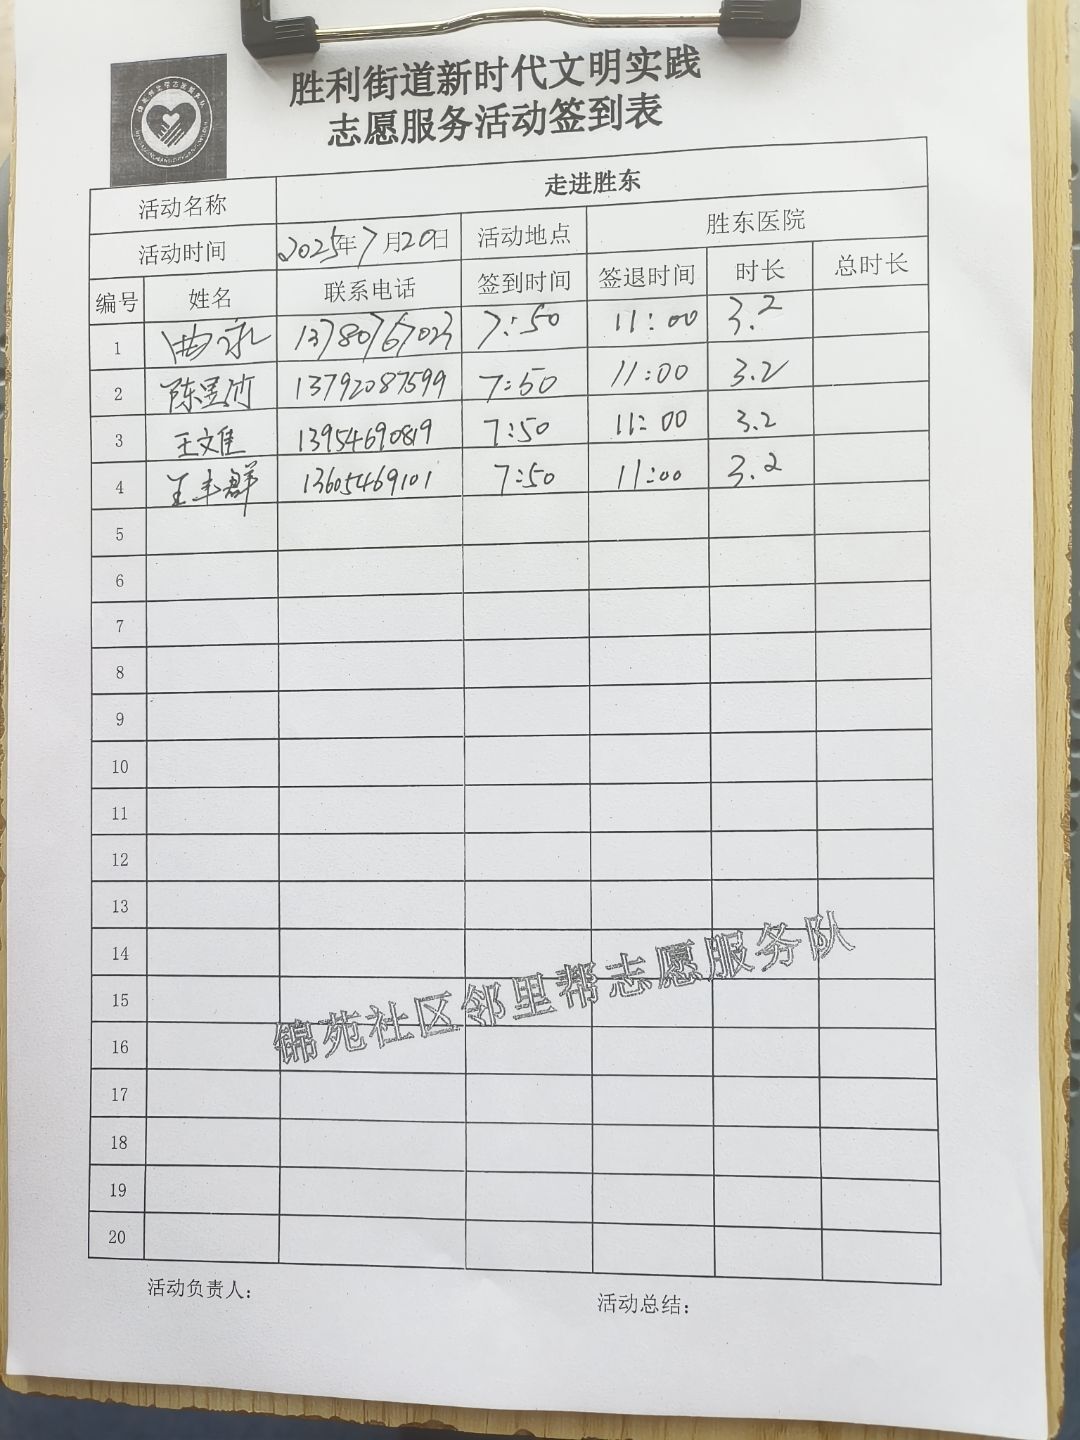 胜利街道新时代文明实践
志愿服务活动签到表
活动名称 走进胜东
活动时间 2025年7月20日 活动地点 胜东医院
编号 姓名 联系电话 签到时间 签退时间 时长 总时长
1 曲永 13780767023 7:50 11:00 3.2
2 陈昱竹 13792087599 7:50 11:00 3.2
3 王文佳 13954690819 7:50 11:00 3.2
4 王丰群 13605469101 7:50 11:00 3.2
5
6
7
8
9
10
11
12
13
14
15
16
17
18
19
20
锦苑社区邻里帮志愿服务队
活动负责人: 活动总结: